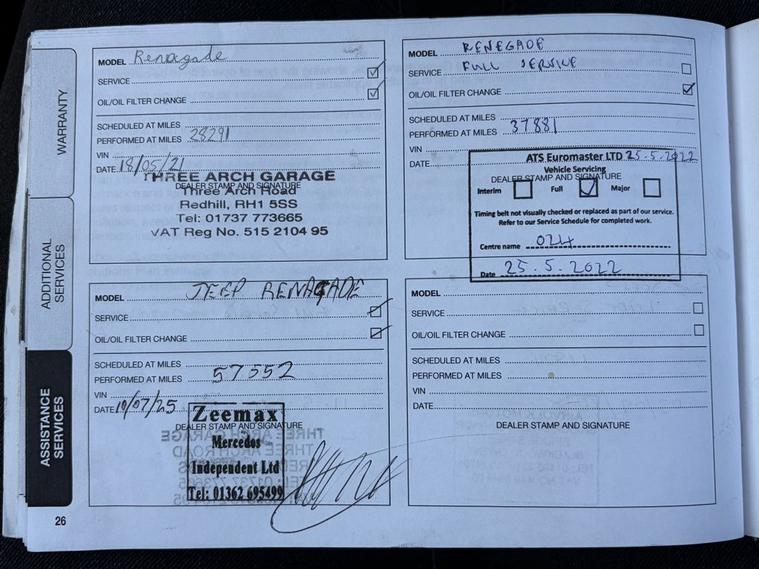 WARRANTY
ADDITIONAL
SERVICES
ASSISTANCE
SERVICES
MODEL Renegade
SERVICE
OIL/OIL FILTER CHANGE
SCHEDULED AT MILES
PERFORMED AT MILES 28291
VIN
DATE 18/05/21
THREE ARCH GARAGE
DEALER STAMP AND SIGNATURE
Three Arch Road
Redhill, RH1 5SS
Tel: 01737 773665
VAT Reg No. 515 2104 95
MODEL RENEGADE
SERVICE FULL SERVICE
OIL/OIL FILTER CHANGE
SCHEDULED AT MILES
PERFORMED AT MILES 37881
VIN
DATE
ATS Euromaster LTD 25-5-2022
Vehicle Servicing
DEALER STAMP AND SIGNATURE
Interim Full Major
Timing belt not visually checked or replaced as part of our service.
Refer to our Service Schedule for completed work.
Centre name
Date 25.5.2022
MODEL JEEP RENAGADE
SERVICE
OIL/OIL FILTER CHANGE
SCHEDULED AT MILES
PERFORMED AT MILES 57552
VIN
DATE 10/07/25
Zeemax
DEALER STAMP AND SIGNATURE
Mercedes
Independent Ltd
Tel: 01362 695499
MODEL
SERVICE
OIL/OIL FILTER CHANGE
SCHEDULED AT MILES
PERFORMED AT MILES
VIN
DATE
DEALER STAMP AND SIGNATURE
26